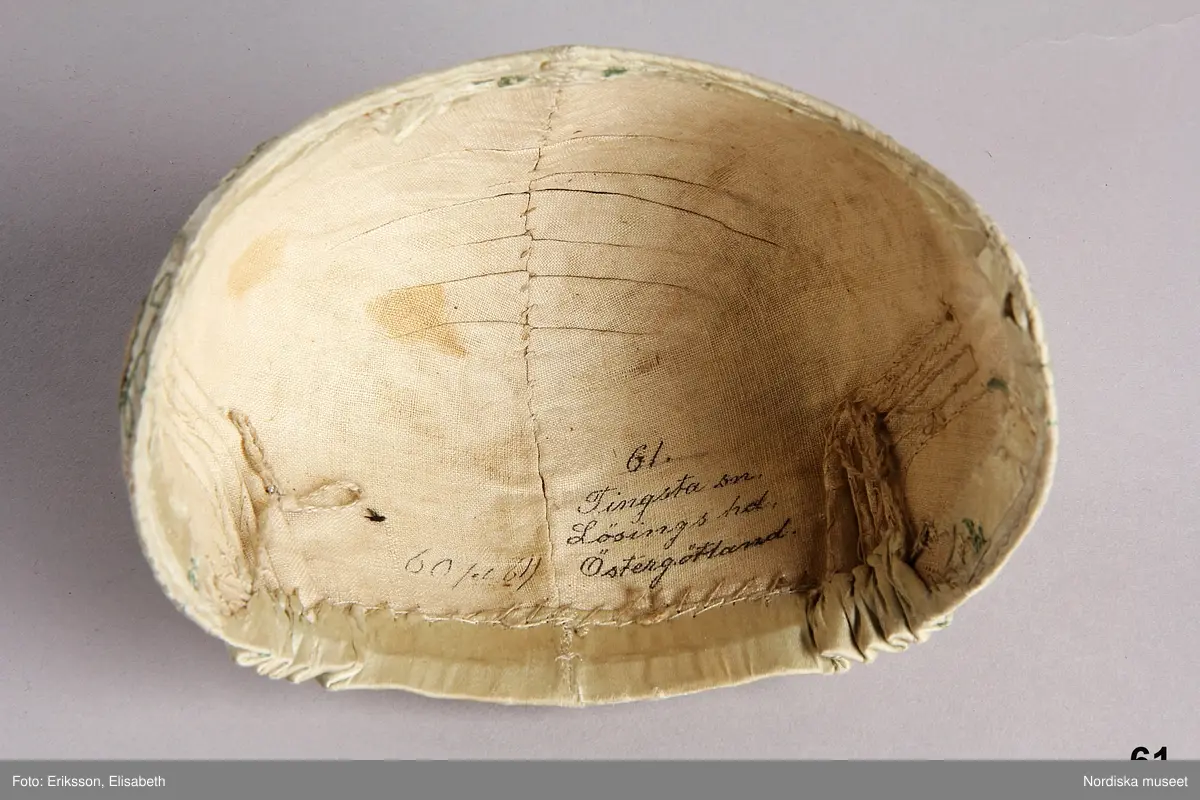 61.
Tingsta sn.
Lösings hd.
Östergötland.
60
61
Foto: Eriksson, Elisabeth
Nordiska museet